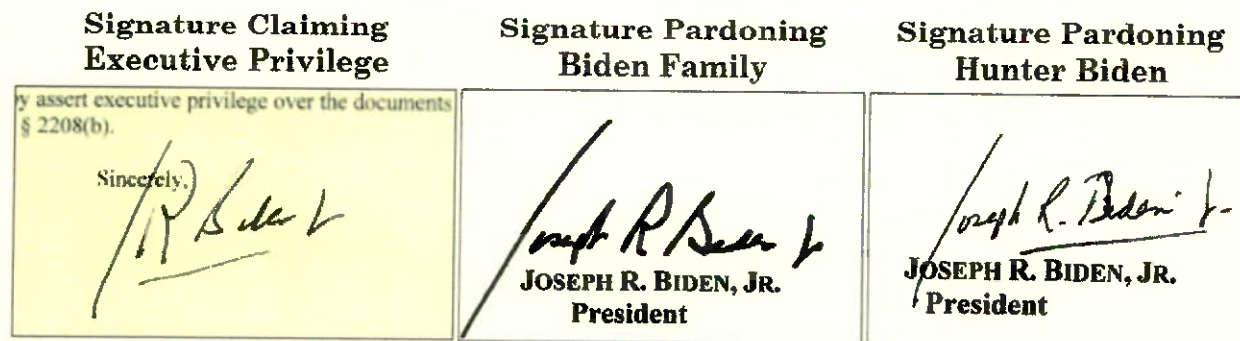 Signature Claiming
Executive Privilege
y assert executive privilege over the documents
§ 2208(b).
Sincerely,
R Biden Jr
Signature Pardoning
Biden Family
Joseph R Biden Jr
JOSEPH R. BIDEN, JR.
President
Signature Pardoning
Hunter Biden
Joseph R. Biden Jr.
JOSEPH R. BIDEN, JR.
President